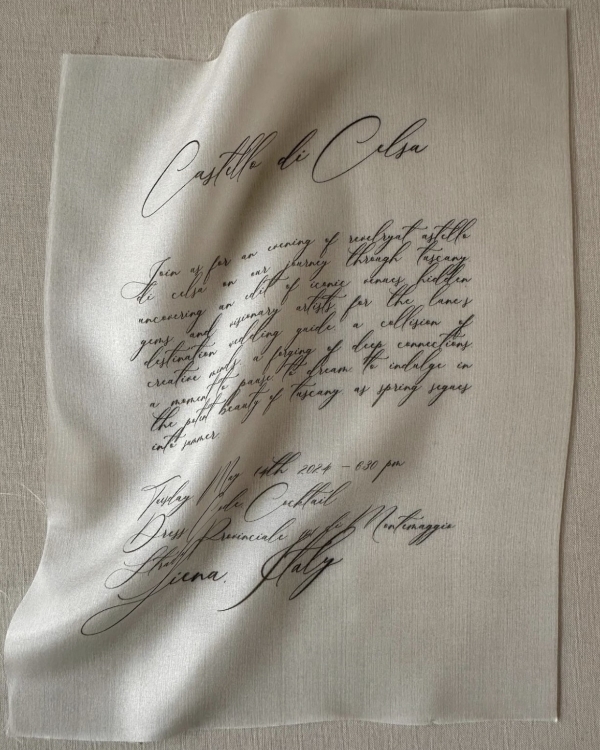 Castello di Celsa
Join us for an evening of revelryat astello
di celsa on our journey through tuscany
uncovering an edit of iconic venues hidden
gems and visionary artists for the lane's
destination wedding guide a collision of
creative minds a forging of deep connections
a moment to pause to dream to indulge in
the potent beauty of tuscany as spring segues
into summer
Tuesday May 14th 2024 - 630 pm
Dress Code Cocktail
Strada Provinciale Montemaggio
Siena, Italy